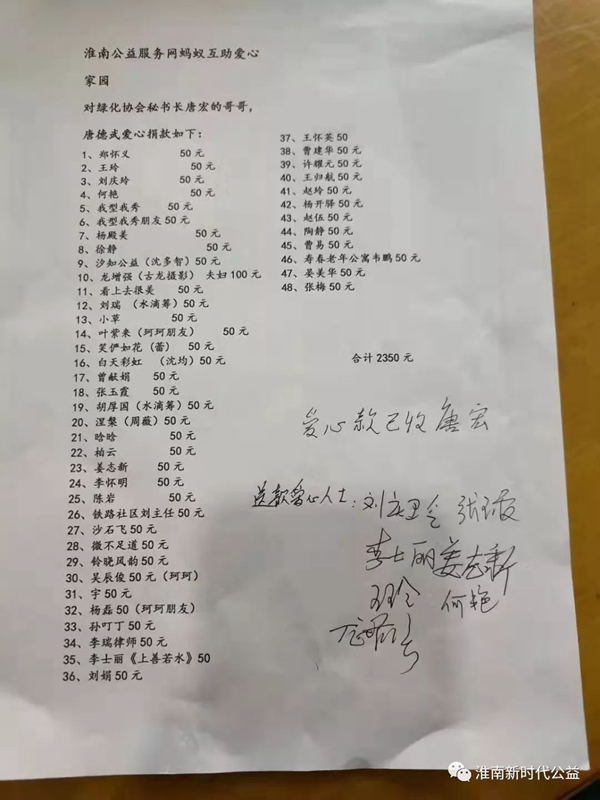 淮南公益服务网蚂蚁互助爱心
家园
对绿化协会秘书长唐宏的哥哥，
唐德武爱心捐款如下：
1、郑怀义 50 元
2、王玲 50 元
3、刘庆玲 50 元
4、何艳 50 元
5、我型我秀 50 元
6、我型我秀朋友 50 元
7、杨殿美 50 元
8、徐静 50 元
9、汐知公益（沈多智）50 元
10、龙增强（古龙摄影） 夫妇 100 元
11、看上去很美 50 元
12、刘瑞 （水滴筹）50 元
13、小草 50 元
14、叶紫来（珂珂朋友） 50 元
15、笑俨如花（蕾） 50 元
16、白天彩虹 （沈均）50 元
17、曾献娟 50 元
18、张玉霞 50 元
19、胡厚国（水滴筹）50 元
20、涅槃（周薇）50 元
21、晗晗 50 元
22、柏云 50 元
23、姜志新 50 元
24、李怀明 50 元
25、陈岩 50 元
26、铁路社区刘主任 50 元
27、沙石飞 50 元
28、微不足道 50 元
29、铃晓风韵 50 元
30、吴辰俊 50 元（珂珂）
31、宇 50 元
32、杨磊 50（珂珂朋友）
33、孙叮丁 50 元
34、李瑞律师 50 元
35、李士丽《上善若水》50
36、刘娟 50 元
37、王怀英 50
38、曹建华 50 元
39、许耀元 50 元
40、王归航 50 元
41、赵玲 50 元
42、杨开驿 50 元
43、赵伍 50 元
44、陶静 50 元
45、曹易 50 元
46、寿春老年公寓韦鹏 50 元
47、晏美华 50 元
48、张梅 50 元
合计 2350 元
爱心款已收唐宏
送款爱心人士：刘庆玲
李士丽 姜志新
王玲 何艳
淮南新时代公益